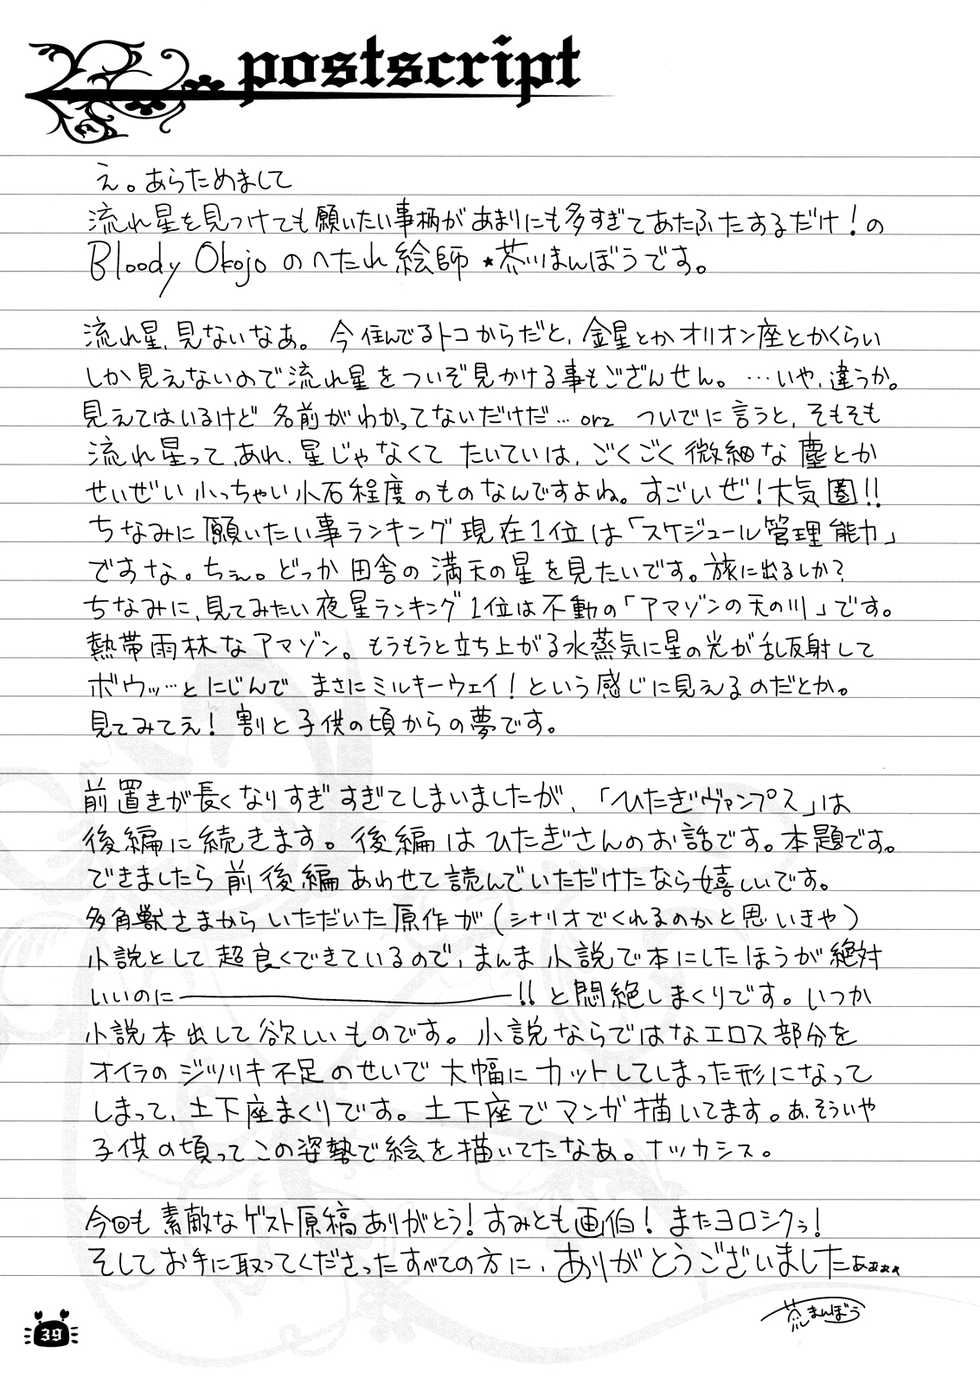 postscript
え。あらためまして
流れ星を見つけても願いたい事柄があまりにも多すぎてあたふたするだけ!の
Bloody Okojo のへたれ絵師★茶川まんぼうです。
流れ星、見ないなあ。今住んでるトコからだと、金星とかオリオン座とかくらい
しか見えないので流れ星をついぞ見かける事もござんせん。…いや、違うか。
見えてはいるけど名前がわかってないだけだ…orz ついでに言うと、そもそも
流れ星って、あれ、星じゃなくてたいていは、ごくごく微細な塵とか
せいぜい小っちゃい小石程度のものなんですよね。すごいぜ!大気圏!!
ちなみに願いたい事ランキング現在1位は「スケジュール管理能力」
ですな。ちぇ。どっか田舎の満天の星を見たいです。旅に出るしか?
ちなみに、見てみたい夜星ランキング1位は不動の「アマゾンの天の川」です。
熱帯雨林なアマゾン。もうもうと立ち上がる水蒸気に星の光が乱反射して
ボウッ…とにじんでまさにミルキーウェイ!という感じに見えるのだとか。
見てみてえ!割と子供の頃からの夢です。
前置きが長くなりすぎすぎてしまいましたが、「ひたぎヴァンプス」は
後編に続きます。後編はひたぎさんのお話です。本題です。
できましたら前後編あわせて読んでいただけたなら嬉しいです。
多角獣さまからいただいた原作が(シナリオでくれるのかと思いきや)
小説として超良くできているので、まんま小説で本にしたほうが絶対
いいのに――――!!と悶絶しまくりです。いつか
小説本出して欲しいものです。小説ならではなエロス部分を
オイラのジツリキ不足のせいで大幅にカットしてしまった形になって
しまって、土下座まくりです。土下座でマンガ描いてます。あ、そういや
子供の頃ってこの姿勢で絵を描いてたなあ。ナツカシス。
今回も素敵なゲスト原稿ありがとう!すみとも画伯!またヨロシクぅ!
そしてお手に取ってくださったすべての方に、ありがとうございましたぁぁぁぁ
まんぼう
39